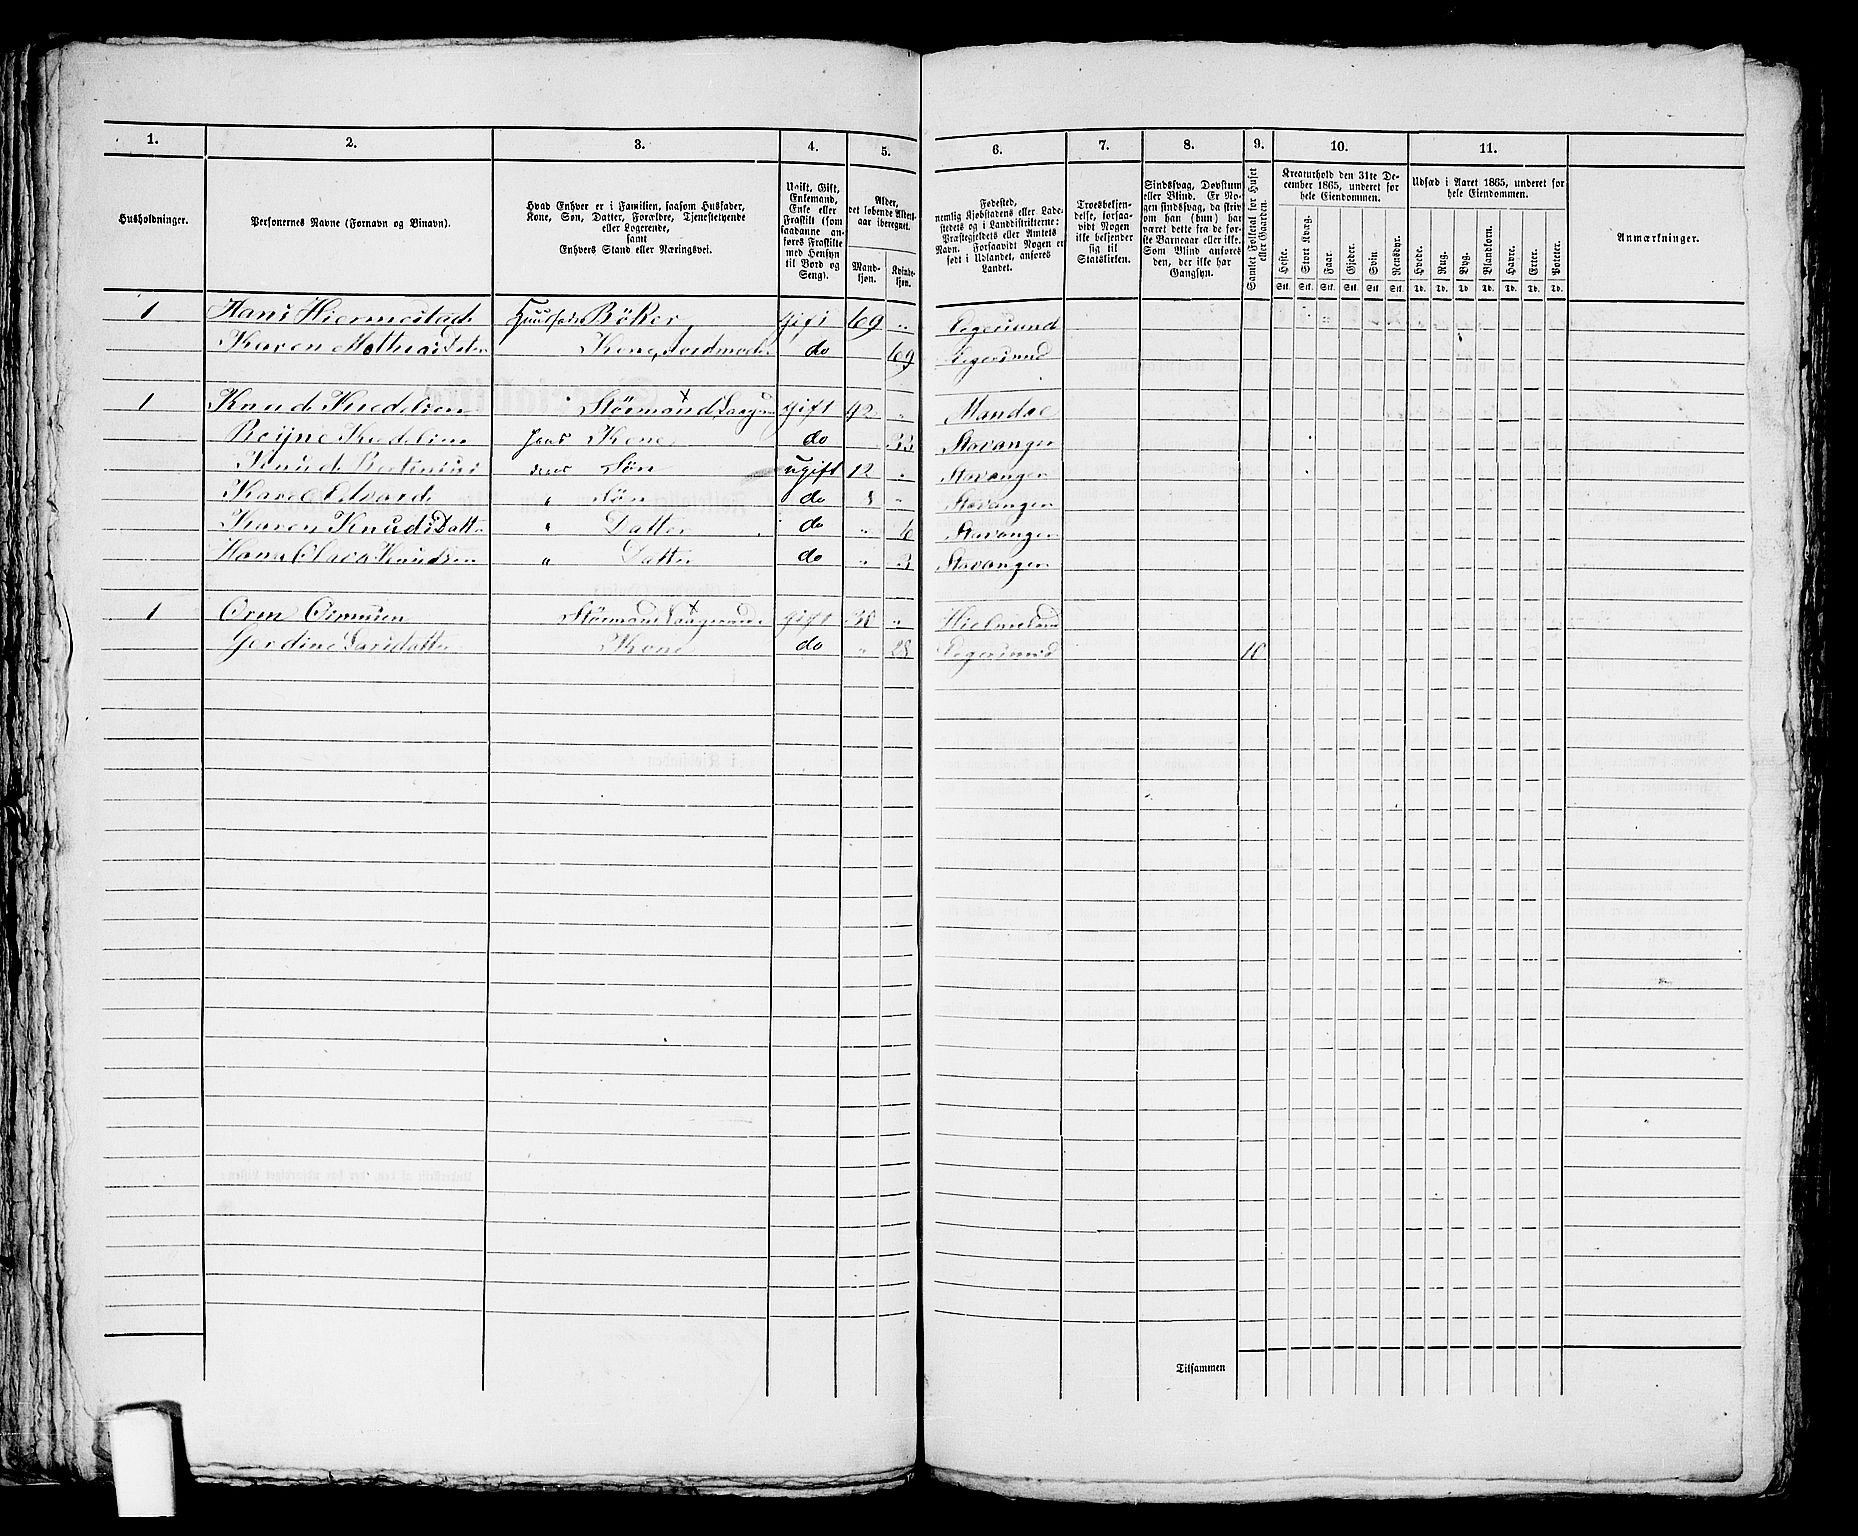 1. 2. 3. 4. 5. 6. 7. 8. 9. 10. 11.
Husholdninger.
Personernes Navne (Fornavn og Binavn).
Hvad Enhver er i Familien, saasom Husfader, Kone, Søn, Datter, Forældre, Tjenestetyende eller Logerende, samt Enhvers Stand eller Næringsvei.
Ugift, Gift, Enkemand, Enke eller Fraskilt (som saadanne anføres Fraskilte med Hensyn til Bord og Seng).
Alder, det løbende Alders-aar iberegnet.
Mand-kjøn. Kvinde-kjøn.
Fødested, nemlig Kjøbstadens eller Ladestedets og i Landdistrikterne: Præstegjeldets eller Amtets Navn. Forsaavidt Nogen er født i Udlandet, anføres Landet.
Troesbekjendelse, forsaavidt Nogen ikke bekjender sig til Statskirken.
Sindssvag, Døvstum eller Blind. Er Nogen sindssvag, da skrives om han (hun) har været dette fra de første Barneaar eller ikke. Som Blind anføres den, der ikke har Gangsyn.
Samlet Folketal for Huset eller Gaarden.
Kreaturhold den 31te December 1865, underet for hele Eiendommen.
Heste. Stort Kvæg. Faar. Gjeder. Svin Rensdyr.
Stk. Stk. Stk. Stk. Stk. Stk.
Udsæd i Aaret 1865, underet for hele Eiendommen.
Hvede. Rug. Byg. Blandkorn. Havre. Erter. Poteter.
Td. Td. Td. Td. Td. Td. Td.
Anmærkninger.
1 Hans Hiermestad Huusfader Böker gift 69 „ Eegersund
Karen Kone, Jordmoder do 69 Eegersund
1 Knud Styrmand gift 42 „ Mandal
hans Kone do 33 Stavanger
Knud Bertinius deres Søn ugift 12 „ Stavanger
Karl Edvard „ Søn do 8 „ Stavanger
Karen Knudsdatter „ Datter do „ 6 Stavanger
Hana Knudsen „ Datter do „ 3 Stavanger
1 Orm Ormsen Styrmand gift „
Gerdine Larsdatter Kone do „ 28 Eegersund 10
Tilsammen